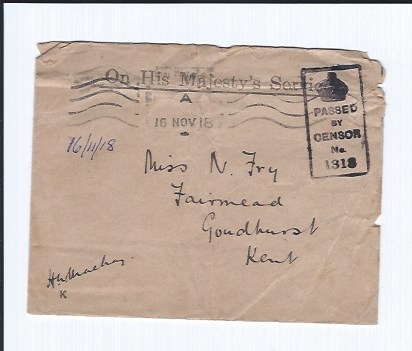 On His Majesty's Service
A
16 NOV 18
PASSED
BY
CENSOR
No.
1818
16/11/18
Miss N. Fry
Fairmead
Goudhurst
Kent
K